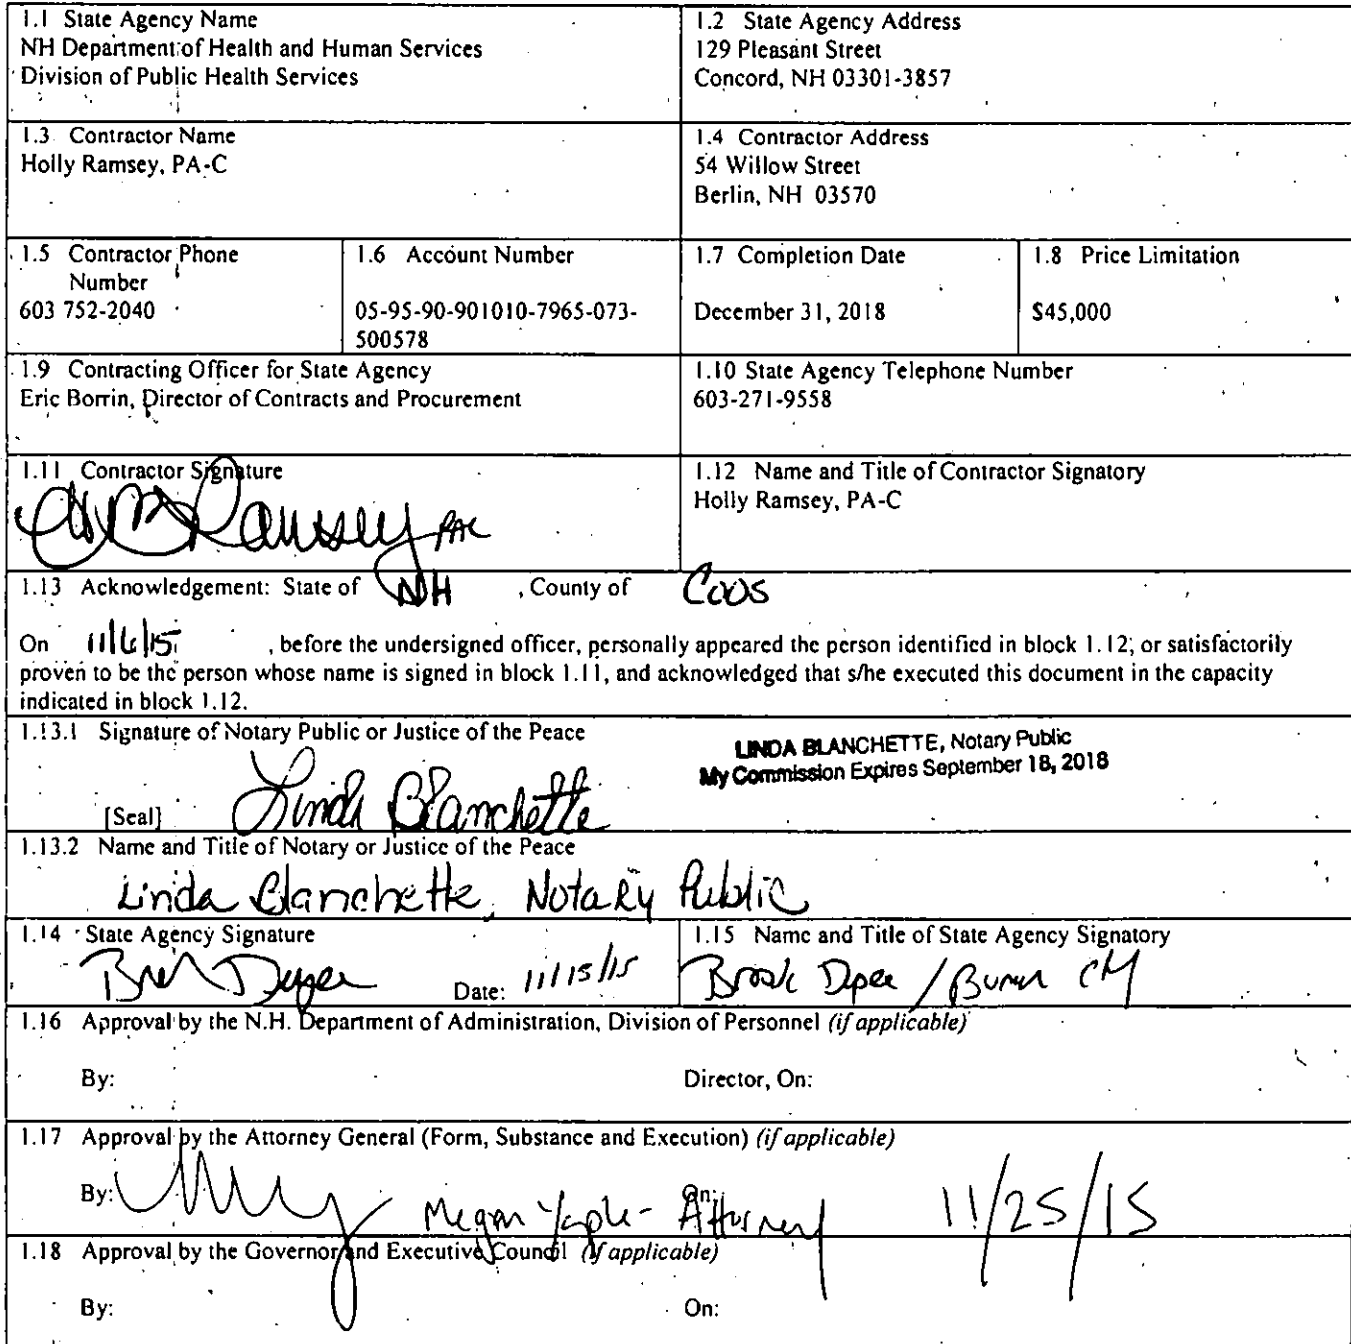 1.1 State Agency Name
NH Department of Health and Human Services
Division of Public Health Services
1.2 State Agency Address
129 Pleasant Street
Concord, NH 03301-3857
1.3 Contractor Name
Holly Ramsey, PA-C
1.4 Contractor Address
54 Willow Street
Berlin, NH 03570
1.5 Contractor Phone
Number
603 752-2040
1.6 Account Number
05-95-90-901010-7965-073-
500578
1.7 Completion Date
December 31, 2018
1.8 Price Limitation
$45,000
1.9 Contracting Officer for State Agency
Eric Borrin, Director of Contracts and Procurement
1.10 State Agency Telephone Number
603-271-9558
1.11 Contractor Signature
Ramsey PAC
1.12 Name and Title of Contractor Signatory
Holly Ramsey, PA-C
1.13 Acknowledgement: State of NH , County of Coos
On 11/6/15 , before the undersigned officer, personally appeared the person identified in block 1.12, or satisfactorily
proven to be the person whose name is signed in block 1.11, and acknowledged that s/he executed this document in the capacity
indicated in block 1.12.
1.13.1 Signature of Notary Public or Justice of the Peace
LINDA BLANCHETTE, Notary Public
My Commission Expires September 18, 2018
[Seal] Linda Blanchette
1.13.2 Name and Title of Notary or Justice of the Peace
Linda Blanchette, Notary Public
1.14 State Agency Signature
Date: 11/15/15
1.15 Name and Title of State Agency Signatory
Brook Dupee /
1.16 Approval by the N.H. Department of Administration, Division of Personnel (if applicable)
By: Director, On:
1.17 Approval by the Attorney General (Form, Substance and Execution) (if applicable)
By: Megan Yaple - Attorney On: 11/25/15
1.18 Approval by the Governor and Executive Council (if applicable)
By: On: